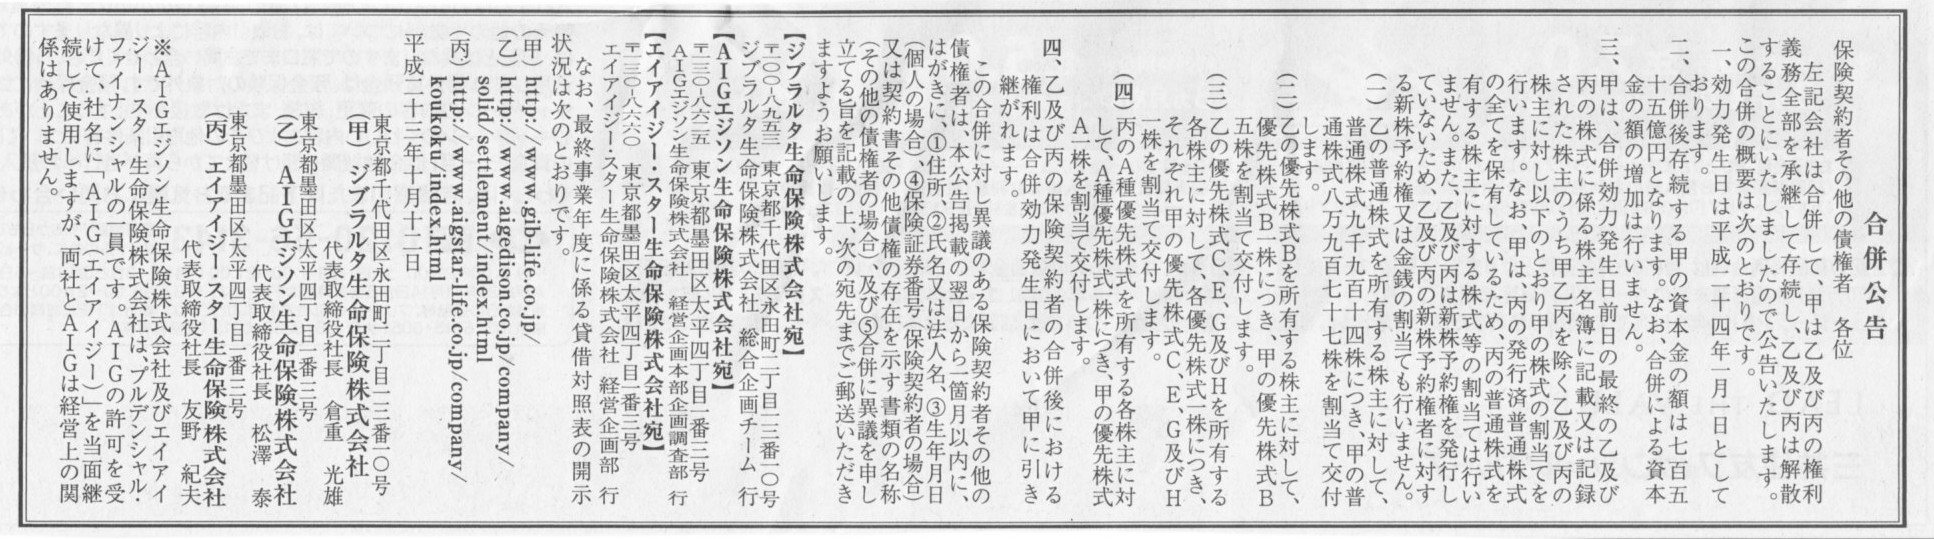 合併公告
保険契約者その他の債権者　各位
左記会社は合併して、甲は乙及び丙の権利
義務全部を承継して存続し、乙及び丙は解散
することにいたしましたので公告いたします。
この合併の概要は次のとおりです。
一、効力発生日は平成二十四年一月一日として
おります。
二、合併後存続する甲の資本金の額は七百五
十五億円となります。なお、合併による資本
金の額の増加は行いません。
三、甲は、合併効力発生日前日の最終の乙及び
丙の株式に係る株主名簿に記載又は記録
された株主のうち甲乙丙を除く乙及び丙の
株主に対し以下のとおり甲の株式の割当てを
行います。なお、甲は、丙の発行済普通株式
の全てを保有しているため、丙の普通株式を
有する株主に対する株式等の割当ては行い
ません。また、乙及び丙は新株予約権を発行し
ていないため、乙及び丙の新株予約権者に対す
る新株予約権又は金銭の割当ても行いません。
（一）乙の普通株式を所有する株主に対して、
普通株式九千九百十四株につき、甲の普
通株式八万九百七十七株を割当て交付
します。
（二）乙の優先株式Bを所有する株主に対して、
優先株式B一株につき、甲の優先株式B
五株を割当て交付します。
（三）乙の優先株式C、E、G及びHを所有する
各株主に対して、各優先株式一株につき、
それぞれ甲の優先株式C、E、G及びH
一株を割当て交付します。
（四）丙のA種優先株式を所有する各株主に対
して、A種優先株式一株につき、甲の優先株式
A一株を割当て交付します。
四、乙及び丙の保険契約者の合併後における
権利は合併効力発生日において甲に引き
継がれます。
この合併に対し異議のある保険契約者その他の
債権者は、本公告掲載の翌日から一箇月以内に、
はがきに、①住所、②氏名又は法人名、③生年月日
（個人の場合）、④保険証券番号（保険契約者の場合）
又は契約書その他債権の存在を示す書類の名称
（その他の債権者の場合）及び⑤合併に異議を申し
立てる旨を記載の上、次の宛先までご郵送いただき
ますようお願いします。
【ジブラルタ生命保険株式会社宛】
〒一〇〇-八九五三　東京都千代田区永田町二丁目一三番一〇号
ジブラルタ生命保険株式会社　総合企画チーム　行
【AIGエジソン生命保険株式会社宛】
〒一三〇-八六二五　東京都墨田区太平四丁目一番三号
AIGエジソン生命保険株式会社　経営企画本部企画調査部　行
【エイアイジー・スター生命保険株式会社宛】
〒一三〇-八六六〇　東京都墨田区太平四丁目一番三号
エイアイジー・スター生命保険株式会社　経営企画部　行
なお、最終事業年度に係る貸借対照表の開示
状況は次のとおりです。
（甲）http://www.gib-life.co.jp/
（乙）http://www.aigedison.co.jp/company/
solid/settlement/index.html
（丙）http://www.aigstar-life.co.jp/company/
koukoku/index.html
平成二十三年十月十二日
東京都千代田区永田町二丁目一三番一〇号
（甲）ジブラルタ生命保険株式会社
代表取締役社長　倉重　光雄
東京都墨田区太平四丁目一番三号
（乙）AIGエジソン生命保険株式会社
代表取締役社長　松澤　泰
東京都墨田区太平四丁目一番三号
（丙）エイアイジー・スター生命保険株式会社
代表取締役社長　友野　紀夫
※AIGエジソン生命保険株式会社及びエイアイ
ジー・スター生命保険株式会社は、プルデンシャル・
ファイナンシャルの一員です。AIGの許可を受
けて、社名に「AIG（エイアイジー）」を当面継
続して使用しますが、両社とAIGは経営上の関
係はありません。